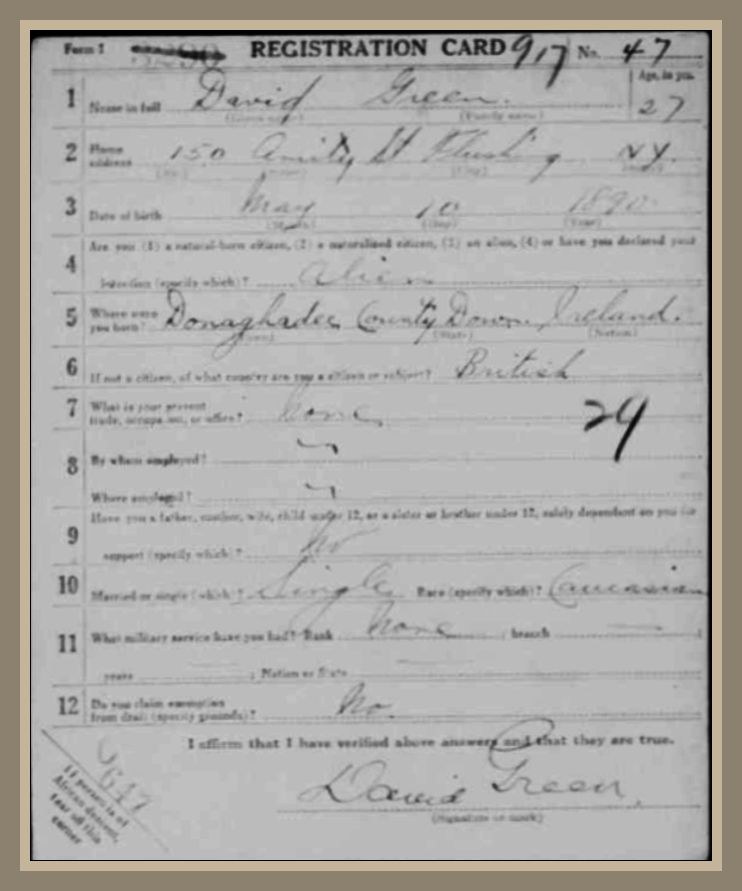 Form 1 REGISTRATION CARD 917 No. 47
1 Name in full David Green. Age, in yrs. 27
(Given name) (Family name)
2 Home address 150 Amity St Flushing NY.
3 Date of birth May 10 1890
(Month) (Day) (Year)
4 Are you (1) a natural-born citizen, (2) a naturalized citizen, (3) an alien, (4) or have you declared your
intention (specify which)? Alien
5 Where were you born? Donaghadee County Down. Ireland.
(Town) (State) (Nation)
6 If not a citizen, of what country are you a citizen or subject? British
7 What is your present trade, occupation, or office? none
29
8 By whom employed? "
Where employed? "
9 Have you a father, mother, wife, child under 12, or a sister or brother under 12, solely dependent on you for
support (specify which)? No
10 Married or single (which)? Single Race (specify which)? Caucasian
11 What military service have you had? Rank none ; branch — ;
years ; Nation or State
12 Do you claim exemption from draft (specify grounds)? No.
I affirm that I have verified above answers and that they are true.
If person is of
African descent,
tear off this
corner
647
David Green.
(Signature or mark)